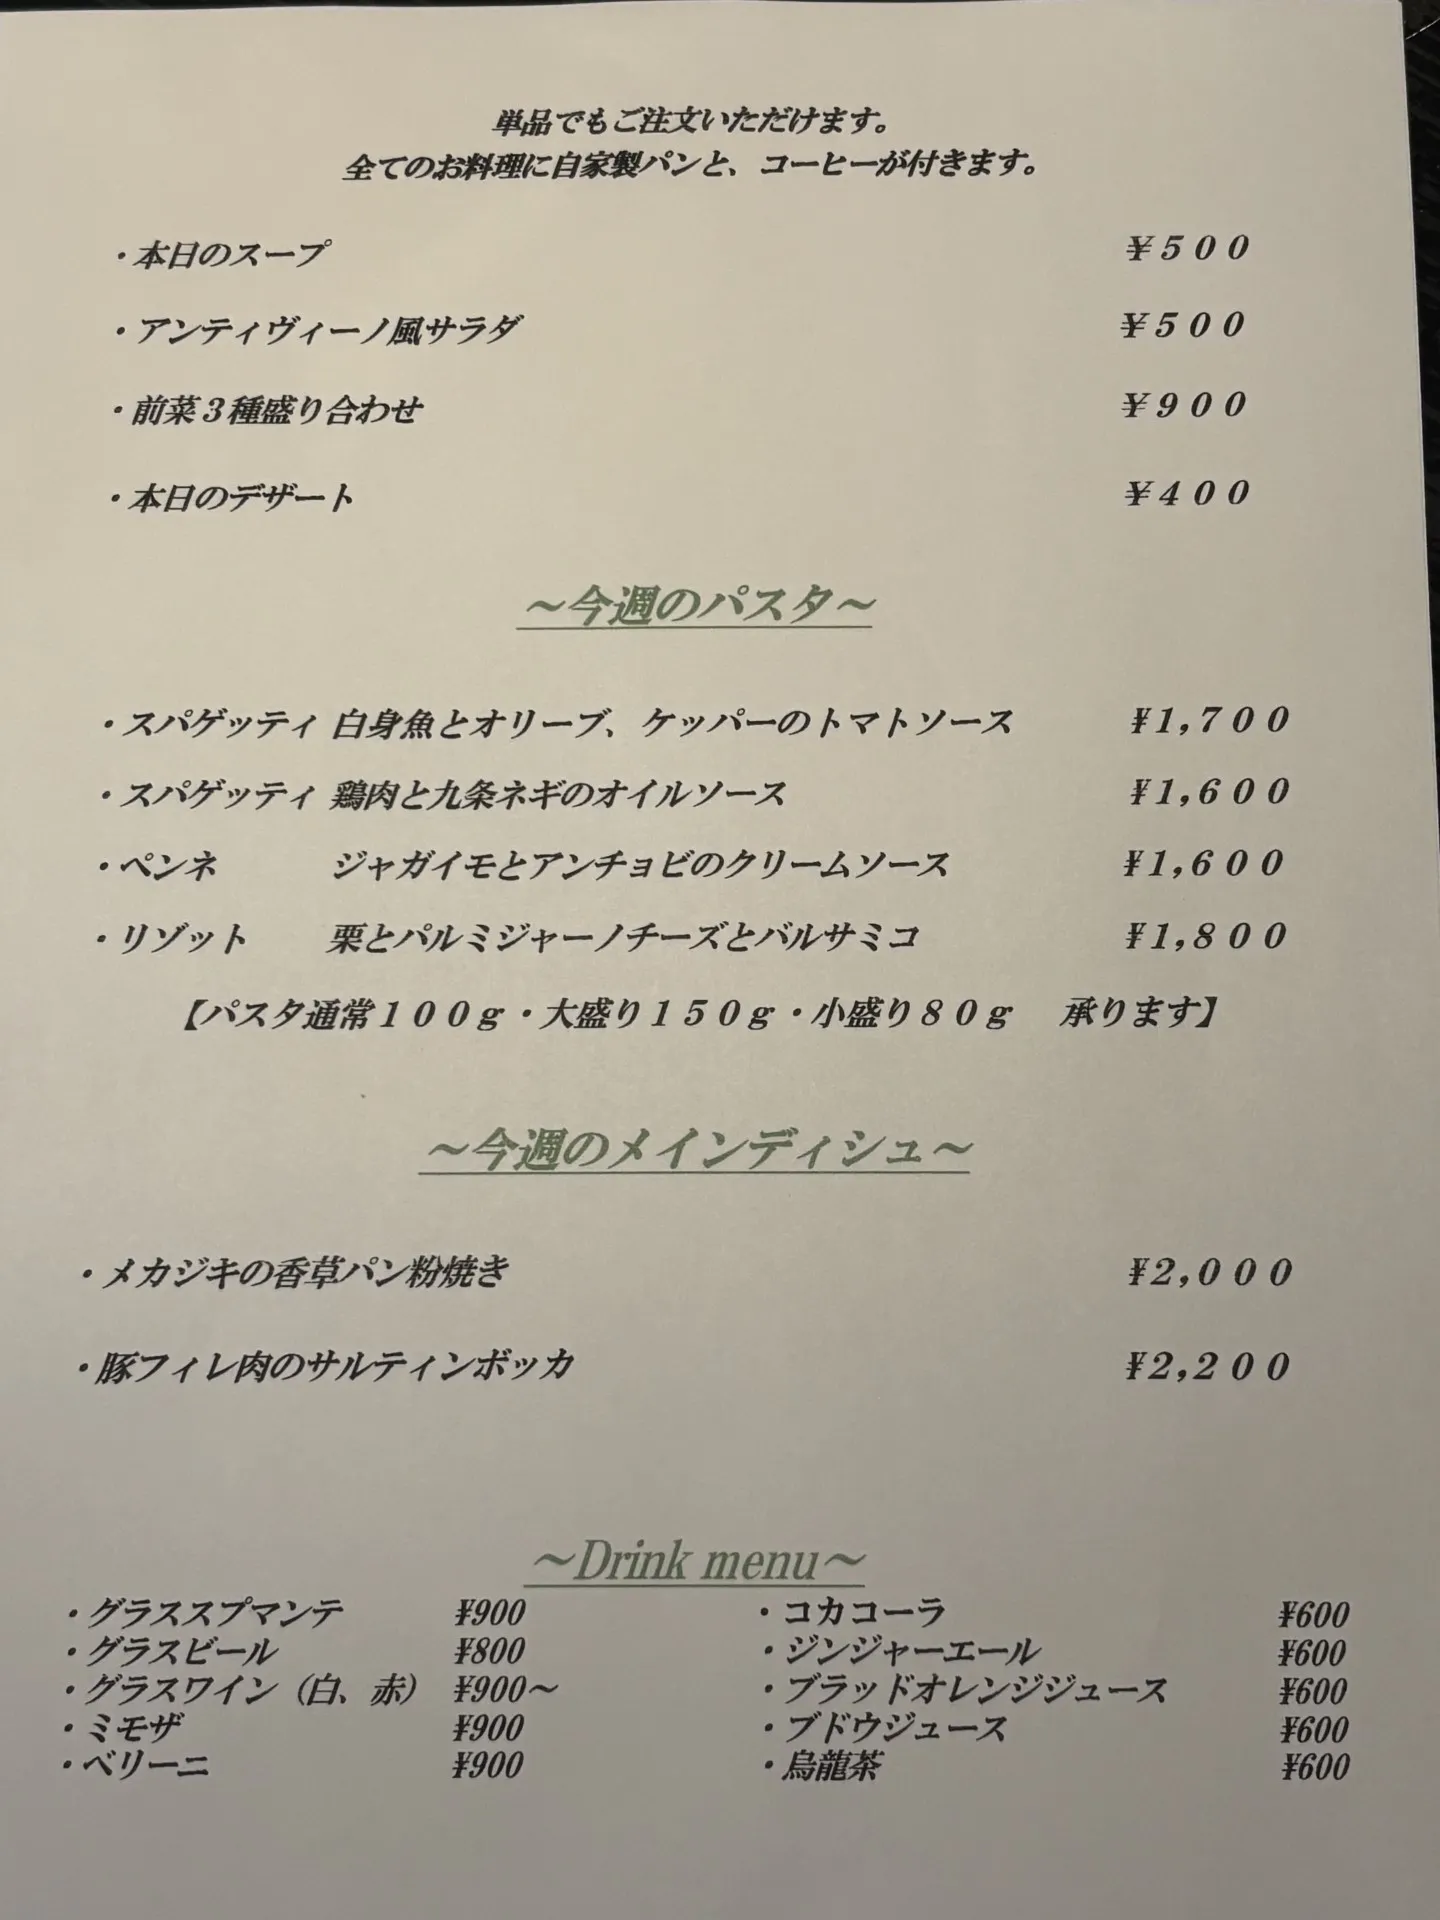 単品でもご注文いただけます。
全てのお料理に自家製パンと、コーヒーが付きます。
・本日のスープ ￥５００
・アンティヴィーノ風サラダ ￥５００
・前菜３種盛り合わせ ￥９００
・本日のデザート ￥４００
～今週のパスタ～
・スパゲッティ 白身魚とオリーブ、ケッパーのトマトソース ¥１,７００
・スパゲッティ 鶏肉と九条ネギのオイルソース ¥１,６００
・ペンネ ジャガイモとアンチョビのクリームソース ¥１,６００
・リゾット 栗とパルミジャーノチーズとバルサミコ ¥１,８００
【パスタ通常１００ｇ・大盛り１５０ｇ・小盛り８０ｇ　承ります】
～今週のメインディシュ～
・メカジキの香草パン粉焼き ¥２,０００
・豚フィレ肉のサルティンボッカ ¥２,２００
～Drink menu～
・グラススプマンテ ¥900 ・コカコーラ ¥600
・グラスビール ¥800 ・ジンジャーエール ¥600
・グラスワイン（白、赤） ¥900～ ・ブラッドオレンジジュース ¥600
・ミモザ ¥900 ・ブドウジュース ¥600
・ベリーニ ¥900 ・烏龍茶 ¥600